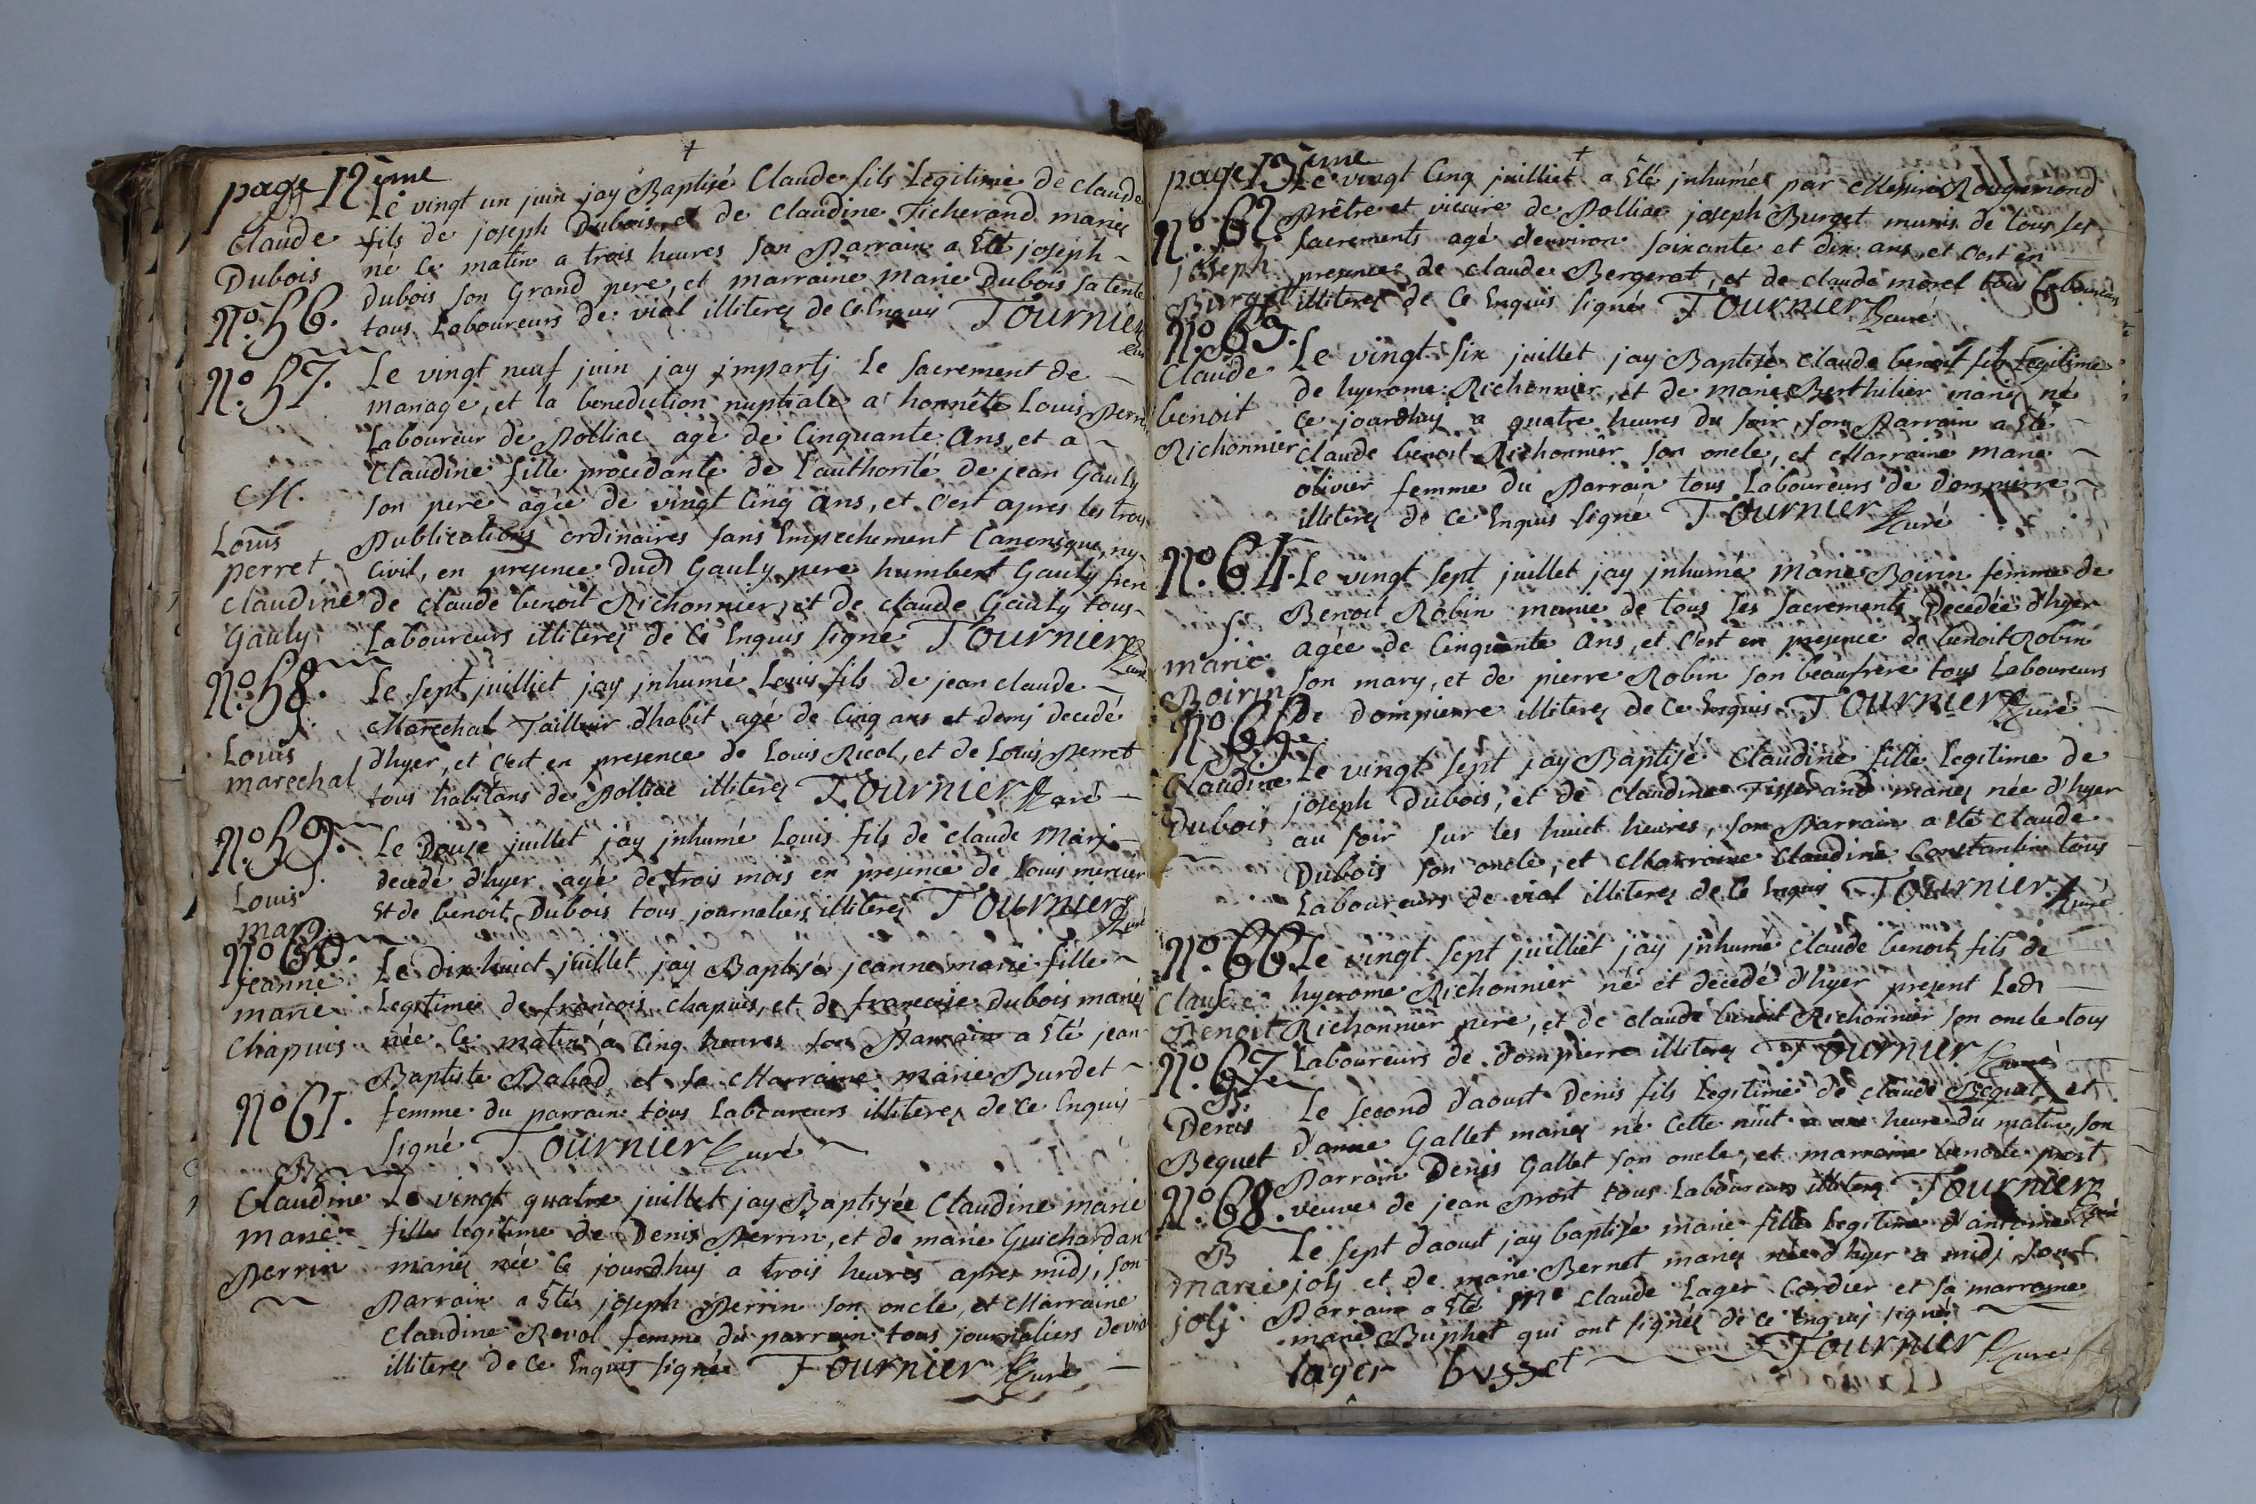 page 12ème
Claude
Dubois
N.o 56.
Le vingt un juin jay Baptisé Claude fils Legitime de Claude
fils de joseph Dubois, et de Claudine Ticherand mariés
né Ce matin a trois heures Son Parrain a Eté joseph
dubois Son Grand pere, et marraine Marie Dubois Sa tente
tous Laboureurs de vial illiterez de Ce Enquis TOURNIER
N.o 57.
M.
Louis
perret
Claudine
Gauly
Le vingt neuf juin jay jmpartj Le Sacrement de
mariage, et la benediction nuptiale a honnête Louis Perret
Laboureur de Polliac agé de Cinquante ans, et a
Claudine fille procedante de l'authorité de jean Gauly
Son pere agée de vingt Cinq ans, et C'est apres les trois
Publications ordinaires Sans Empechement Canonique, ny
Civil, en presence dudt Gauly pere humbert Gauly frere
de Claude benoit Richonnier, et de Claude Gauly tous
Laboureurs illiterez de Ce Enquis Signé TOURNIER Curé
N.o 58.
S.
Louis
marechal
Le Sept juilliet jay jnhumé Louis fils de jean claude
Marechal Tailleur d'habit agé de Cinq ans et demj decedé
d'hyer, et C'est en presence de Louis Ricol, et de Louis Perret
tous habitans de Polliac illiterez TOURNIER Curé
N.o 59.
S.
Louis
mary
Le Douse juillet jay jnhumé Louis fils de Claude Marj
decedé d'hyer agé de trois mois en presence de Louis mercier
Et de benoit Dubois tous journaliers illiterez TOURNIER Curé
N.o 60.
jeanne
marie
Chapuis
Le Dix huict juillet jay Baptisé jeanne marie fille
Legitime de françois Chapuis, et de françoise dubois mariés
née Ce matin a Cinq heures Son Parrain a Eté jean
Baptiste Babad et Sa Marraine marie Burdet
femme du parrain tous Laboureurs illiterez de Ce Enquis
Signé TOURNIER Curé
N.o 61.
B
Claudine
marie
Perrin
Le vingt quatre juillet jay Baptisée Claudine marie
fille legitime de Denis Perrin, et de marie Guichardan
mariés née Ce jourd'huy a trois heures apres midj, Son
Parrain a Eté joseph Perrin Son oncle, et Marraine
Claudine Revol femme du parrain tous journaliers de vial
illiterez de Ce Enquis Signé TOURNIER Curé
page 13ème
N.o 62
joseph
Burget
Le vingt Cinq juilliet a Eté jnhumé par Messire Rougemond
Prêtre et vicaire de Polliac joseph Burget munis de tous Ses
Sacrements agé d'environ Soixante et dix ans, et C'est en
presence de Claude Bergerat, et de Claude morel tous Laboureurs
illiterez de Ce Enquis Signé TOURNIER Curé
N.o 63.
Claude
benoit
Richonnier
Le vingt Six juillet jay Baptisé Claude benoit fils Legitime
de hyerome Richonnier, et de marie Berthilier mariés né
Ce jourd'huy a quatre heures du Soir, Son Parrain a Eté
Claude benoit Richonnier Son oncle, et Marraine marie
olivier femme du Parrain tous Laboureurs de dompierre
illiterez de Ce Enquis Signé TOURNIER Curé
N.o 64.
S.
marie
Boirin
Le vingt Sept juillet jay jnhumé Marie Boirin femme de
Benoit Robin munie de tous Ses Sacrements Decedée d'hyer
agée de Cinquante ans, et C'est en presence de benoit Robin
Son mary, et de pierre Robin Son beaufrere tous Laboureurs
de dompierre illiterez de Ce Enquis TOURNIER Curé
N.o 65.
Claudine
Dubois
Le vingt Sept jay Baptisé Claudine fille Legitime de
joseph Dubois, et de Claudine Tisserand mariés née d'hyer
au Soir Sur les huict heures, Son Parrain a Eté Claude
Dubois Son oncle, et Marraine Claudine Constantin tous
Laboureurs de vial illiterez de Ce Enquis TOURNIER Curé
N.o 66
Claude
Benoit
Le vingt Sept juilliet jay jnhumé Claude benoit fils de
hyerome Richonnier né et decedé d'hyer present Ledt
Richonnier pere, et de Claude benoit Richonnier Son oncle tous
Laboureurs de Dompierre illiterez TOURNIER Curé
N.o 67
Denis
Bequet
Le Second d'aoust Denis fils Legitime de Claude Bequet, et
d'anne Gallet mariés né Cette nuit a une heure du matin, Son
Parrain Denis Gallet Son oncle, et marraine benoite prost
veuve de jean Prost tous Laboureurs illiterez TOURNIER Curé
N.o 68.
B
marie
jolj
Le Sept daoust jay baptisé marie fille Legitime d'antoine
jolj et de marie Bernet mariés née d'hyer a midj Son
Parrain a Eté Me Claude Lager Cordier et Sa marraine
marie Buphet qui ont Signés de Ce Enquis Signé
lager busset TOURNIER Curé